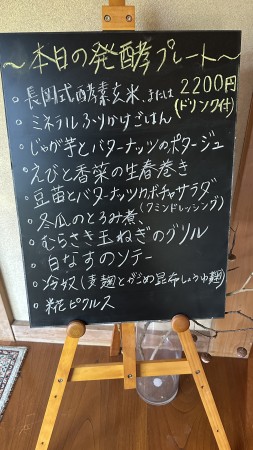 ～本日の発酵プレート～
2200円
(ドリンク付)
○長岡式酵素玄米、または
○ミネラルふりかけごはん
○じゃが芋とバターナッツのポタージュ
○えびと香菜の生春巻き
○豆苗とバターナッツカボチャサラダ
(クミンドレッシング)
○冬瓜のとろみ煮
○むらさき玉ねぎのグリル
○白なすのソテー
○冷奴(麦麹とがごめ昆布しょうゆ麹)
○糀ピクルス